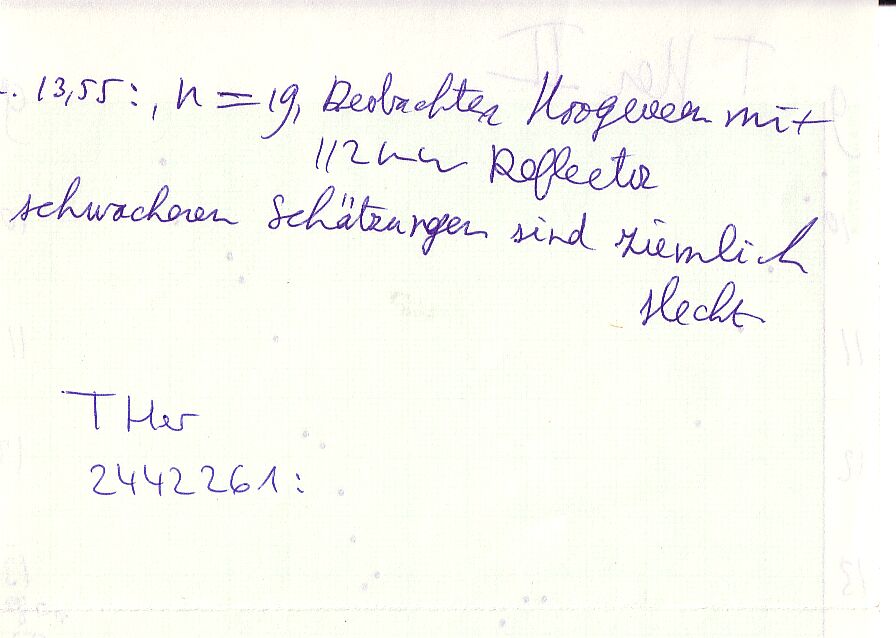 13,55:, n = 19, Beobachter Hoogeveen mit
112mm Reflector
schwacheren Schätzungen sind ziemlich
slecht
T Her
2442261: